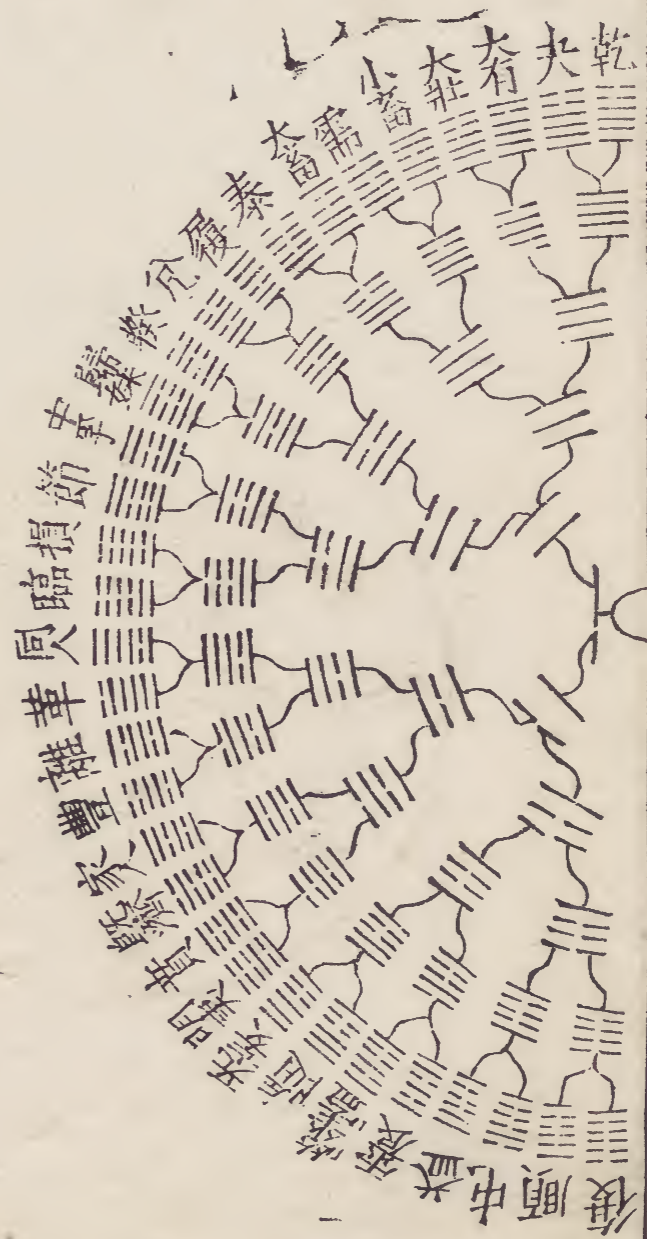 乾
夬
大有
大壯
小畜
需
大畜
泰
履
兊
睽
歸妹
中孚
節
損
臨
同人
革
離
豐
家人
既濟
賁
明夷
无妄
隨
噬嗑
震
益
屯
頤
復